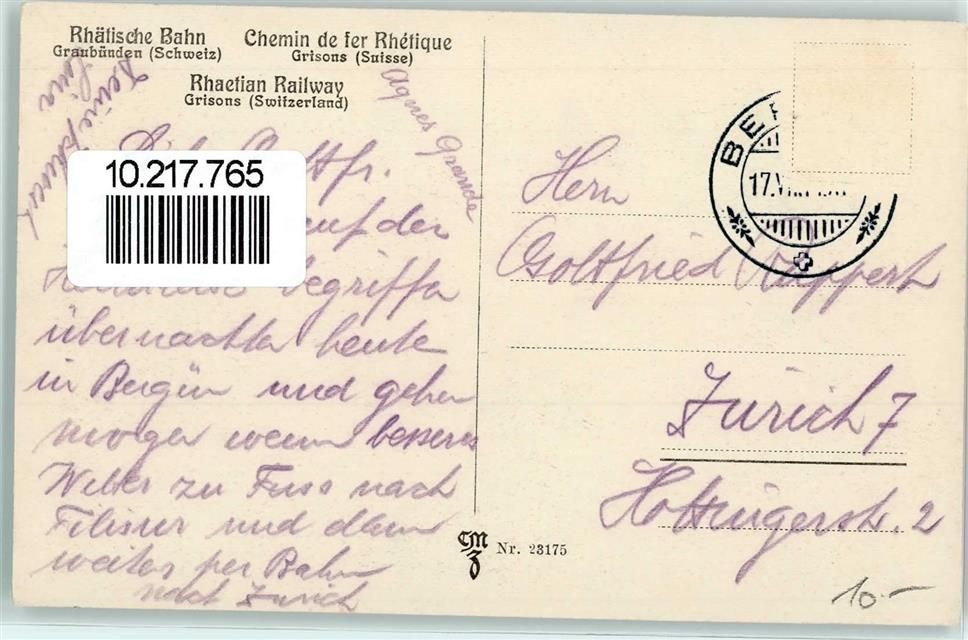 Rhätische Bahn
Graubünden (Schweiz)
Chemin de fer Rhétique
Grisons (Suisse)
Rhaetian Railway
Grisons (Switzerland)
Deine
Lina
Agnes
10.217.765
Gottfr.
auf der
begriffen
übernachten heute
in Bergün und gehen
morgen wenn besseres
Wetter zu Fuss nach
Filisur und dann
weiter per Bahn
nach Zürich
CMZ Nr. 23175
BE
17.V
Herrn
Gottfried
Zürich 7
Hottingerstr. 2
10.-